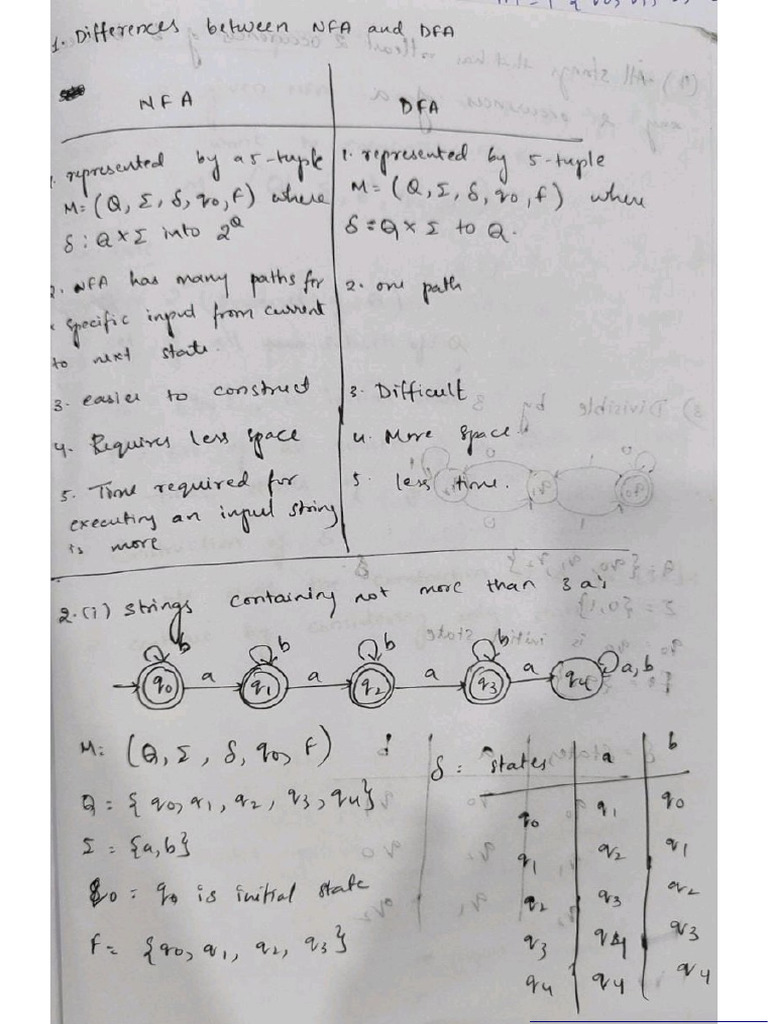 1. Differences between NFA and DFA
NFA
DFA
1. represented by a 5-tuple
M = (Q, Σ, δ, q0, F) where
δ : Q × Σ into 2^Q
1. represented by 5-tuple
M = (Q, Σ, δ, q0, F) where
δ = Q × Σ to Q.
2. NFA has many paths for
specific input from current
to next state.
2. one path
3. easier to construct
3. Difficult
4. Requires less space
4. More space.
5. Time required for
executing an input string
is more
5. less time.
2. (i) Strings containing not more than 3 a's
b b b b
q0 a q1 a q2 a q3 a q4 a, b
M = (Q, Σ, δ, q0, F)
Q = { q0, q1, q2, q3, q4 }
Σ = {a, b}
q0 = q0 is initial state
F = {q0, q1, q2, q3}
δ = states a b
q0 q1 q0
q1 q2 q1
q2 q3 q2
q3 q4 q3
q4 q4 q4